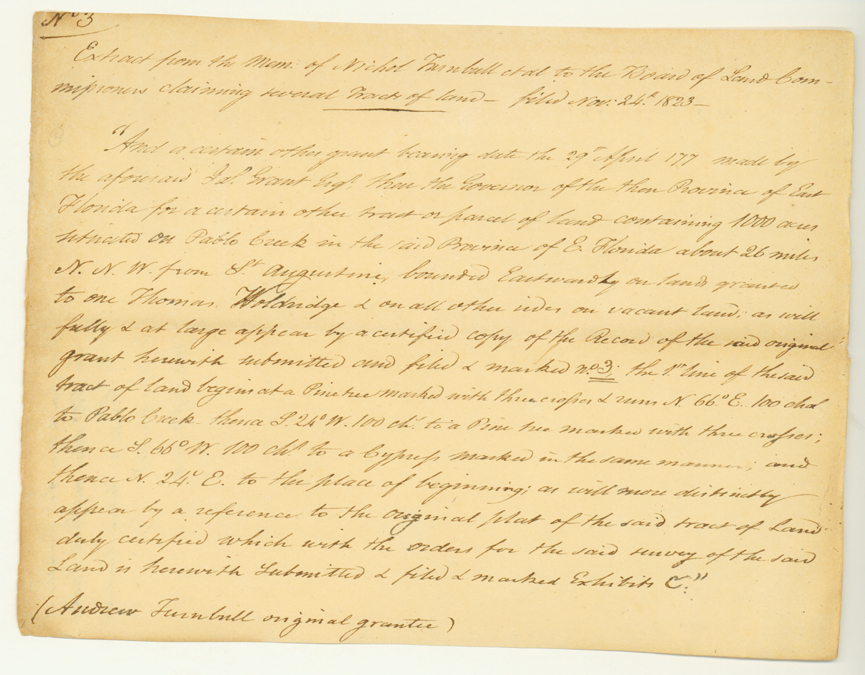 No 3
Extract from the Mem: of Nichol Turnbull et al to the Board of Land Com-
missioners claiming several Tracts of land – filed Nov: 24th 1823 –
"And a certain other grant bearing date the 29th April 177 made by
the aforesaid Jas. Grant Esqr. then the Governor of the then Province of East
Florida for a certain other tract or parcel of land containing 1000 acres
situated on Pablo Creek in the said Province of E. Florida about 26 miles
N. N. W. from St Augustine, bounded Eastwardly on lands granted
to one Thomas Holdridge & on all other sides on vacant land; as will
fully & at large appear by a certified copy of the Record of the said original
grant herewith submitted and filed & marked no. 3; the 1st line of the said
tract of land begins at a Pine tree marked with three crosses & runs N. 66° E. 100 chs
to Pablo Creek thence S. 24° W. 100 chs. to a Pine tree marked with three crosses;
thence S. 66° W. 100 chs to a Cypress marked in the same manner; and
thence N. 24° E. to the place of beginning; as will more distinctly
appear by a reference to the original plat of the said tract of Land
duly certified which with the orders for the said survey of the said
Land is herewith submitted & filed & marked Exhibits C."
(Andrew Turnbull original grantee)